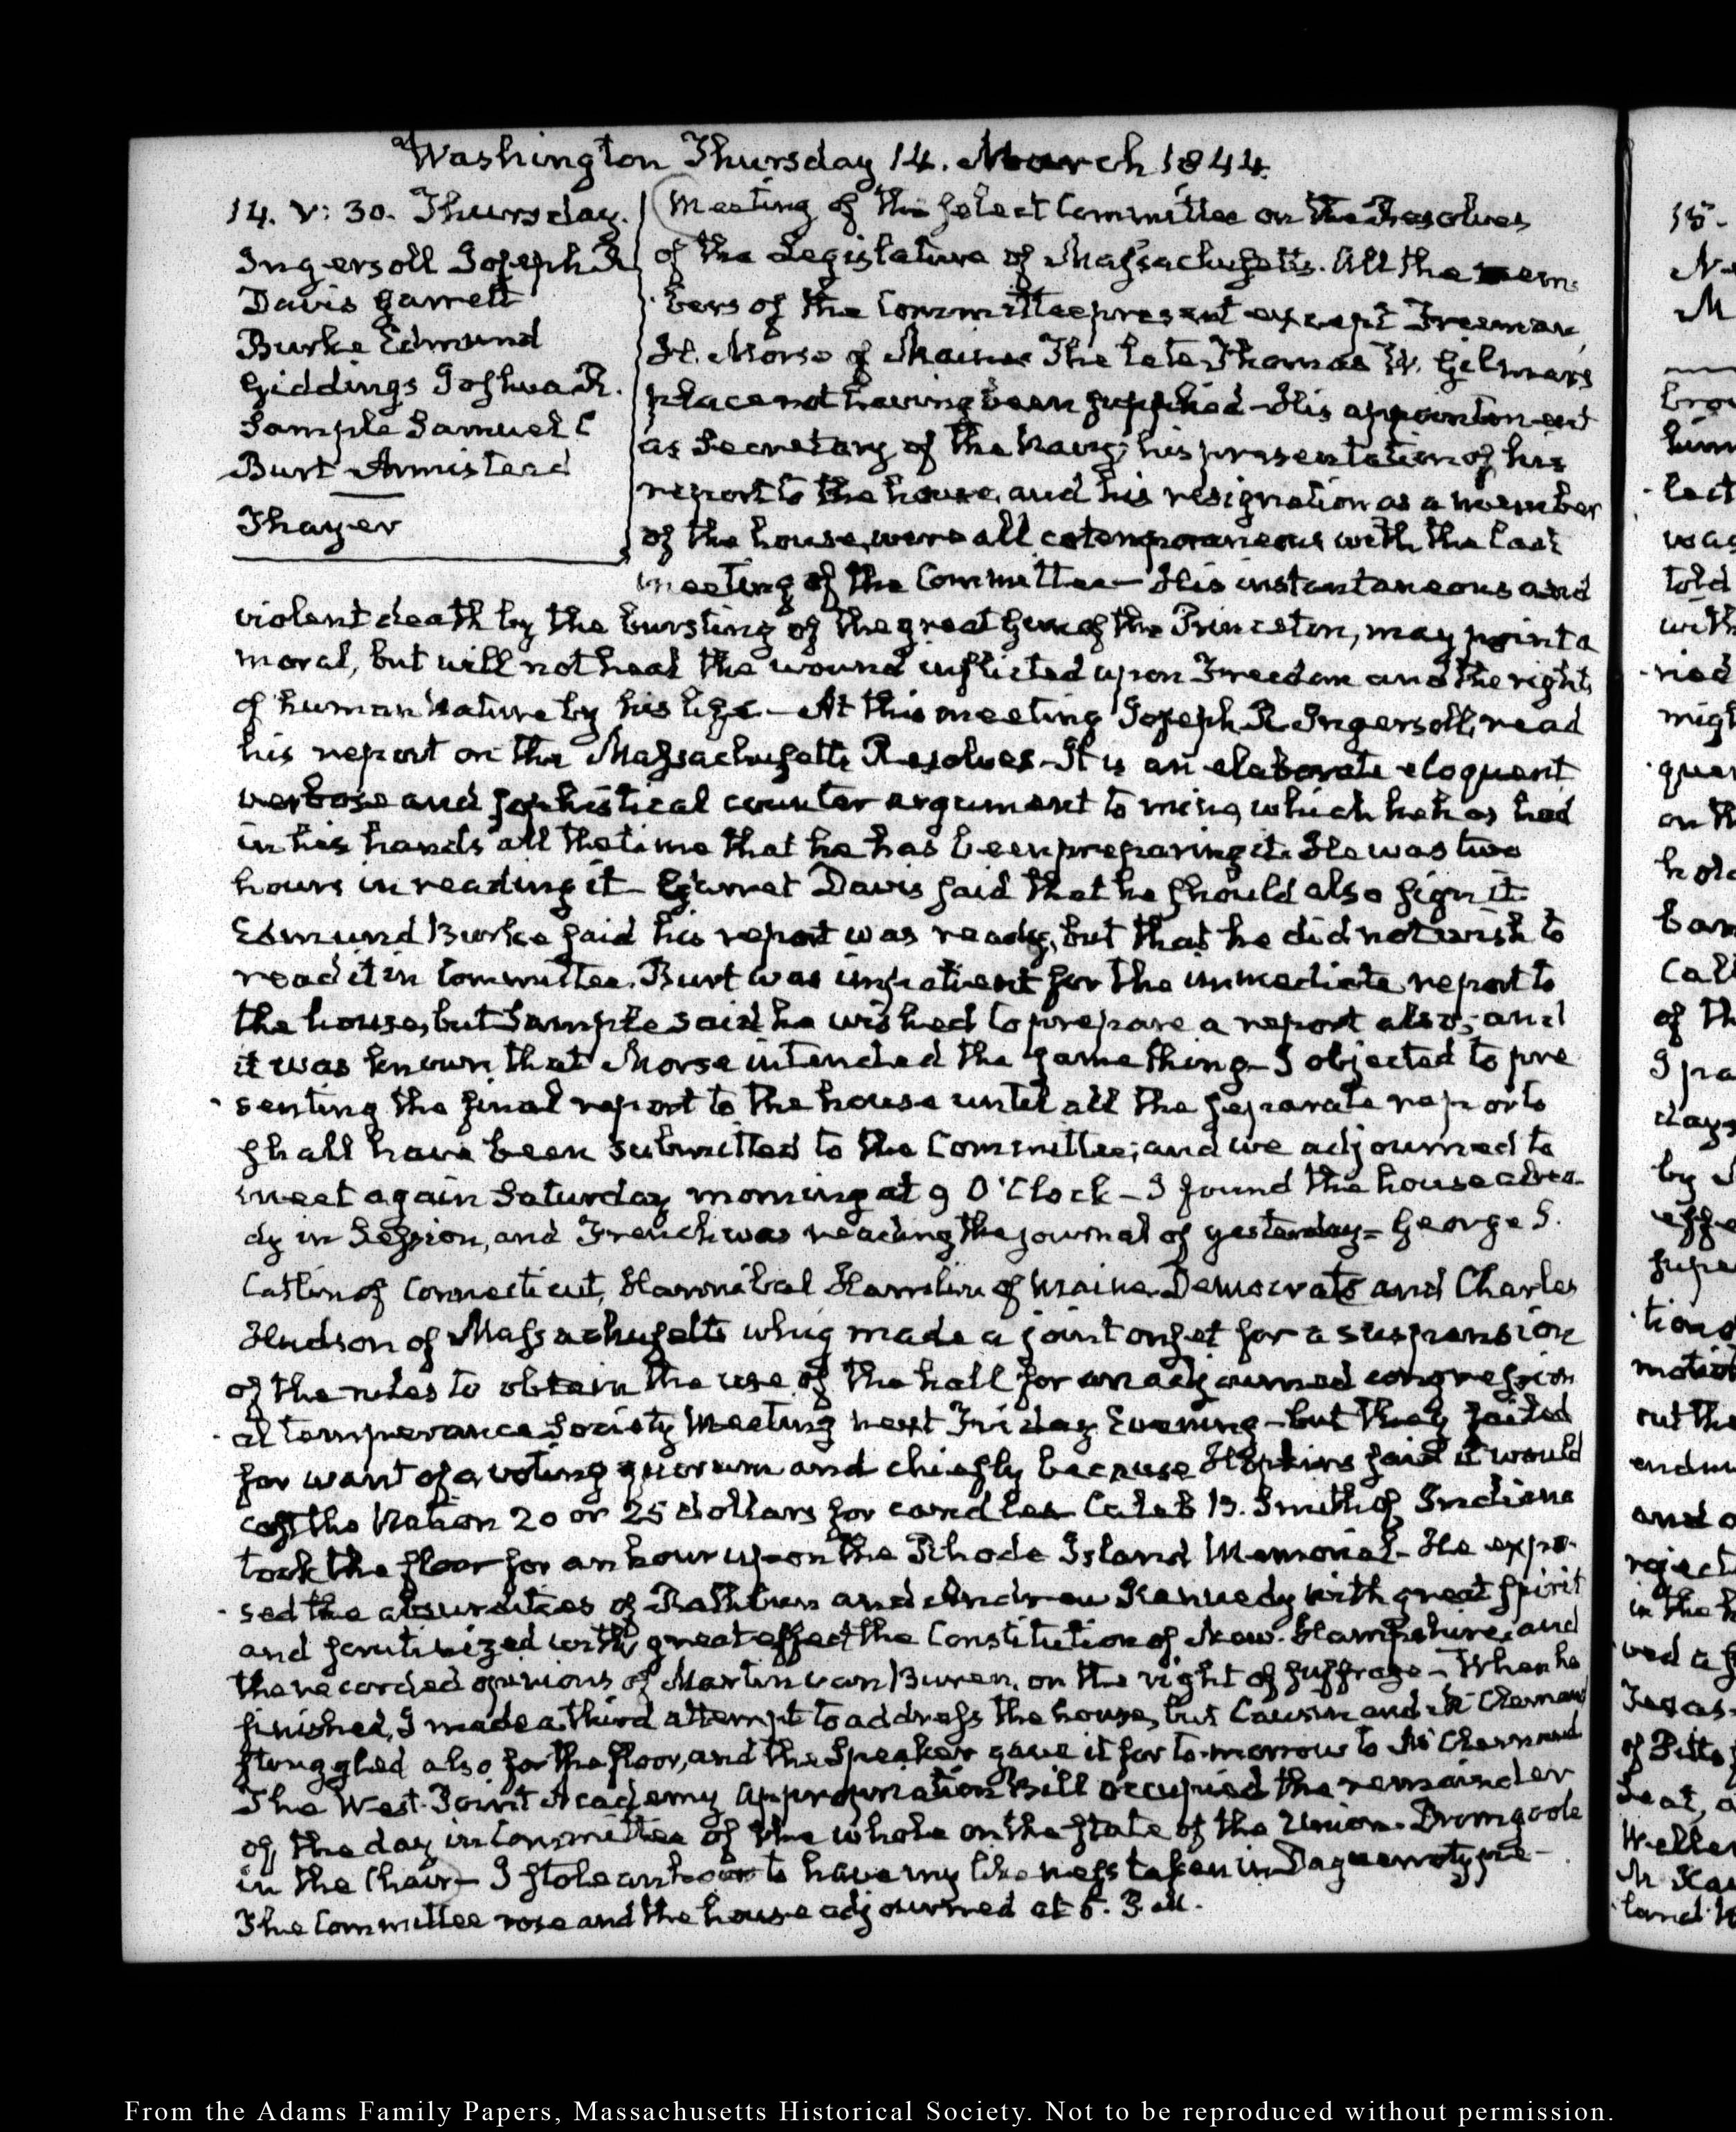 Washington Thursday 14. March 1844.
14. V: 30. Thursday.
Ingersoll Joseph R
Davis Garrett
Burke Edmund
Giddings Joshua R.
Sample Samuel C
Burt Armistead
Thayer
Meeting of the select Committee on the Resolves
of the Legislature of Massachusetts. All the mem-
bers of the Committee present except Freeman
H. Morse of Maine The late Thomas W. Gilmers
place not having been supplied - His appointment
as Secretary of the Navy, his presentation of his
report to the house, and his resignation as a member
of the house, were all cotemporaneous with the last
meeting of the Committee - His instantaneous and
violent death by the bursting of the great Gun of the Princeton, may point a
moral, but will not heal the wound inflicted upon Freedom and the rights
of human Nature by his life - At this meeting Joseph R Ingersoll, read
his report on the Massachusetts Resolves - It is an elaborate eloquent
verbose and sophistical counter argument to mine, which he has had
in his hands all the time that he has been preparing it. He was two
hours in reading it - Garret Davis said that he should also sign it
Edmund Burke said his report was ready, but that he did not wish to
read it in Committee. Burt was impatient for the immediate report to
the house, but Sample said he wished to prepare a report also; and
it was known that Morse intended the same thing - I objected to pre
senting the final report to the house until all the separate reports
shall have been submitted to the Committee; and we adjourned to
meet again Saturday morning at 9 O'Clock - I found the house alrea-
dy in Session, and French was reading the journal of yesterday - George S.
Catlin of Connecticut, Hannibal Hamlin of Maine Democrats and Charles
Hudson of Massachusetts whig made a joint onset for a suspension
of the rules to obtain the use of the hall for an adjourned congression
al temperance Society Meeting next Friday Evening - but they failed
for want of a voting quorum and chiefly because Hopkins said it would
cost the Nation 20 or 25 dollars for candles Caleb B. Smith of Indiana
took the floor for an hour upon the Rhode Island Memorial - He expo-
sed the absurdities of Rathbun and Andrew Kennedy with great spirit
and scrutinized with great effect the Constitution of New-Hampshire, and
the recorded opinions of Martin van Buren, on the right of suffrage - When he
finished, I made a third attempt to address the house, but Causin and Mc Clernand
struggled also for the floor, and the Speaker gave it for to-morrow to Mc Clernand
The West-Point Academy Appropriation Bill occupied the remainder
of the day in Committee of the whole on the state of the Union - Dromgoole
in the Chair - I stole an hour to have my likeness taken in Daguerrotype -
The Committee rose and the house adjourned at 5. P.M.
From the Adams Family Papers, Massachusetts Historical Society. Not to be reproduced without permission.